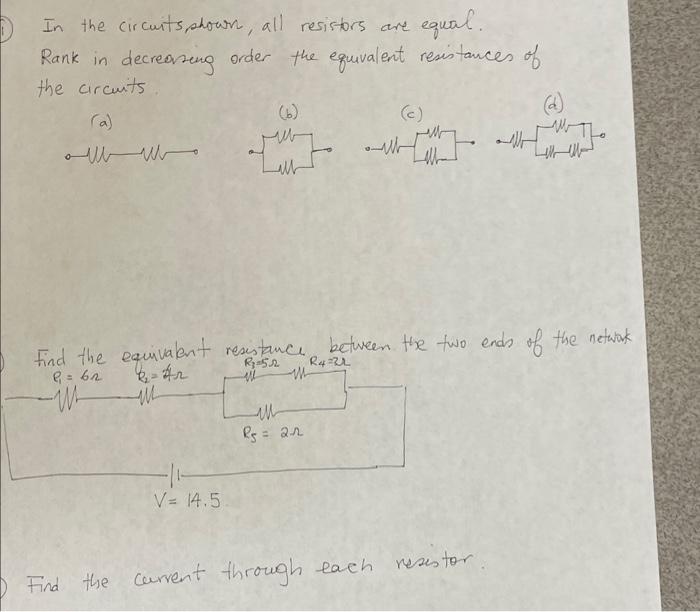 1 In the circuits, shown, all resistors are equal.
Rank in decreasing order the equivalent resistances of
the circuits.
(a) (b) (c) (d)
Find the equivalent resistance between the two ends of the network
R1 = 6Ω R2 = 4Ω R3=5Ω R4=2Ω
R5 = 2Ω
V = 14.5
Find the current through each resistor.